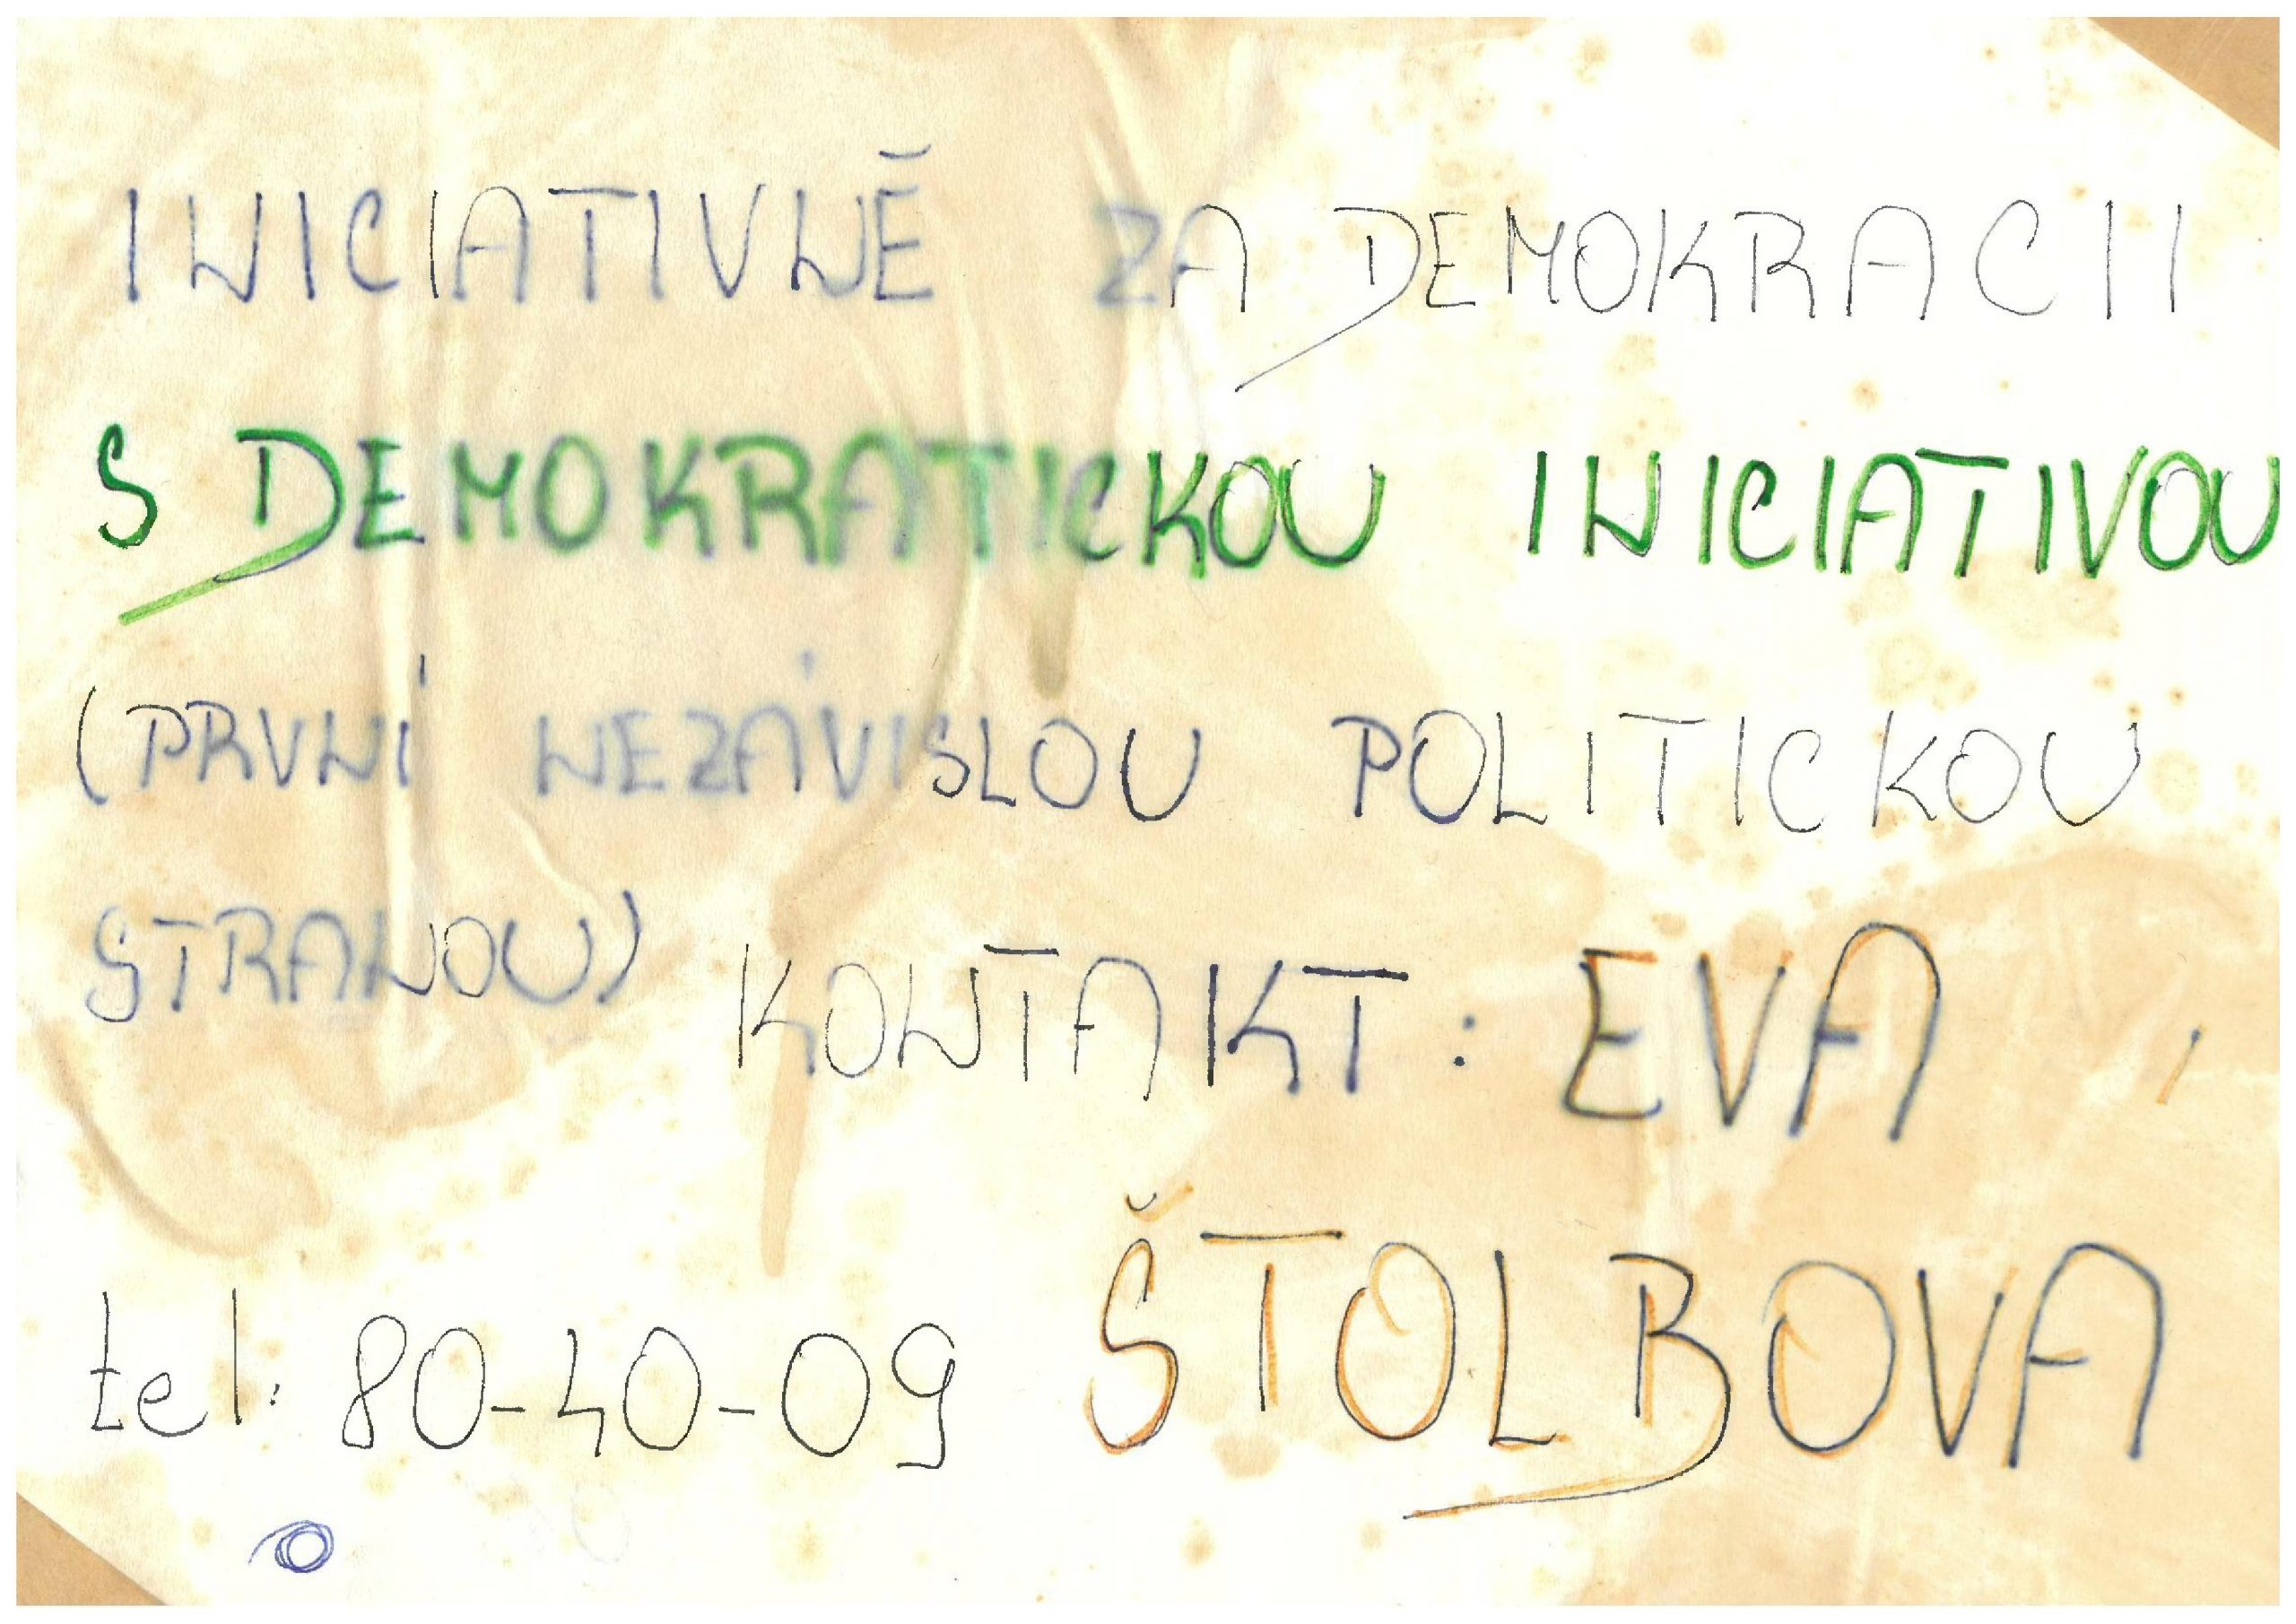 INICIATIVNĚ ZA DEMOKRACII
S DEMOKRATICKOU INICIATIVOU
(PRVNÍ NEZÁVISLOU POLITICKOU
STRANOU)
KONTAKT: EVA
ŠTOLBOVÁ
tel: 80-40-09